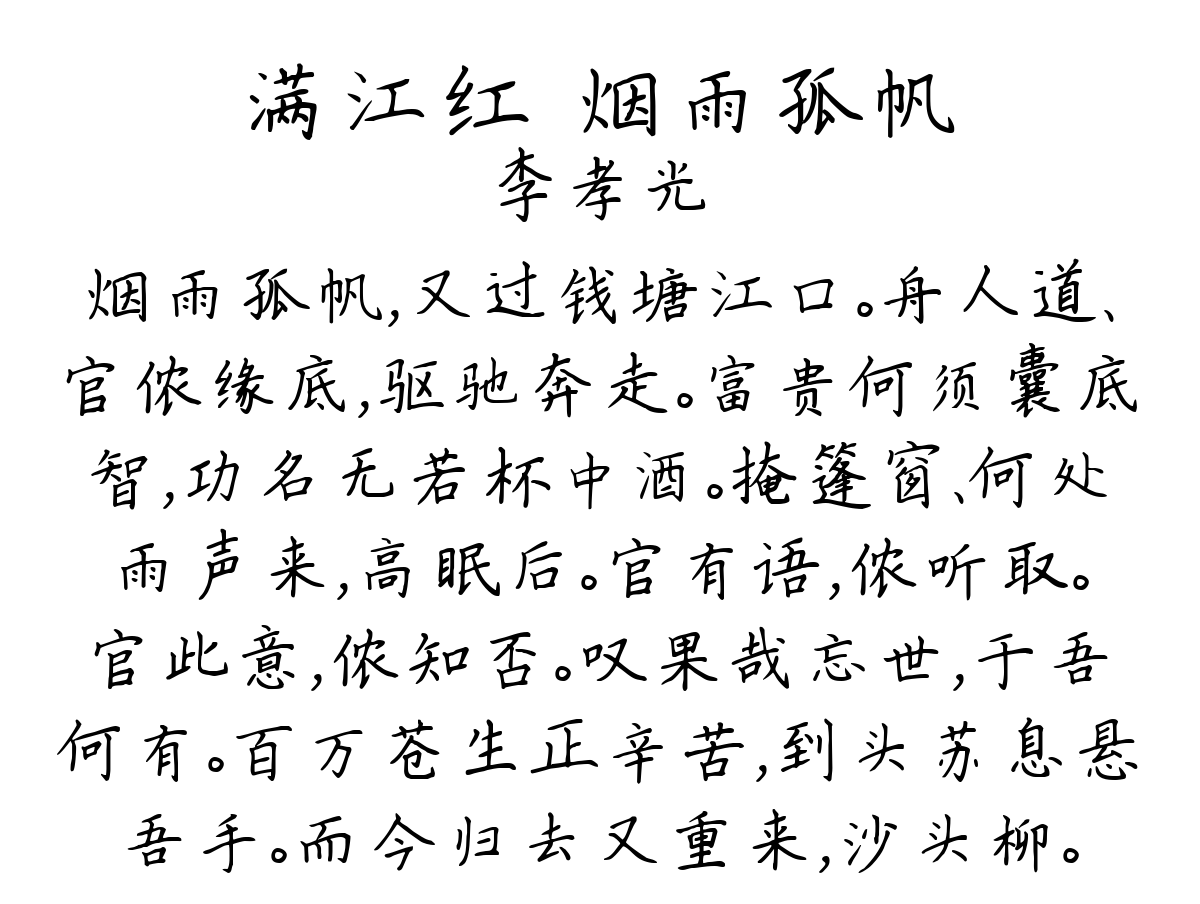 满江红 烟雨孤帆
李孝光
烟雨孤帆,又过钱塘江口。舟人道、
官侬缘底,驱驰奔走。富贵何须囊底
智,功名无若杯中酒。掩篷窗、何处
雨声来,高眠后。官有语,侬听取。
官此意,侬知否。叹果哉忘世,于吾
何有。百万苍生正辛苦,到头苏息悬
吾手。而今归去又重来,沙头柳。